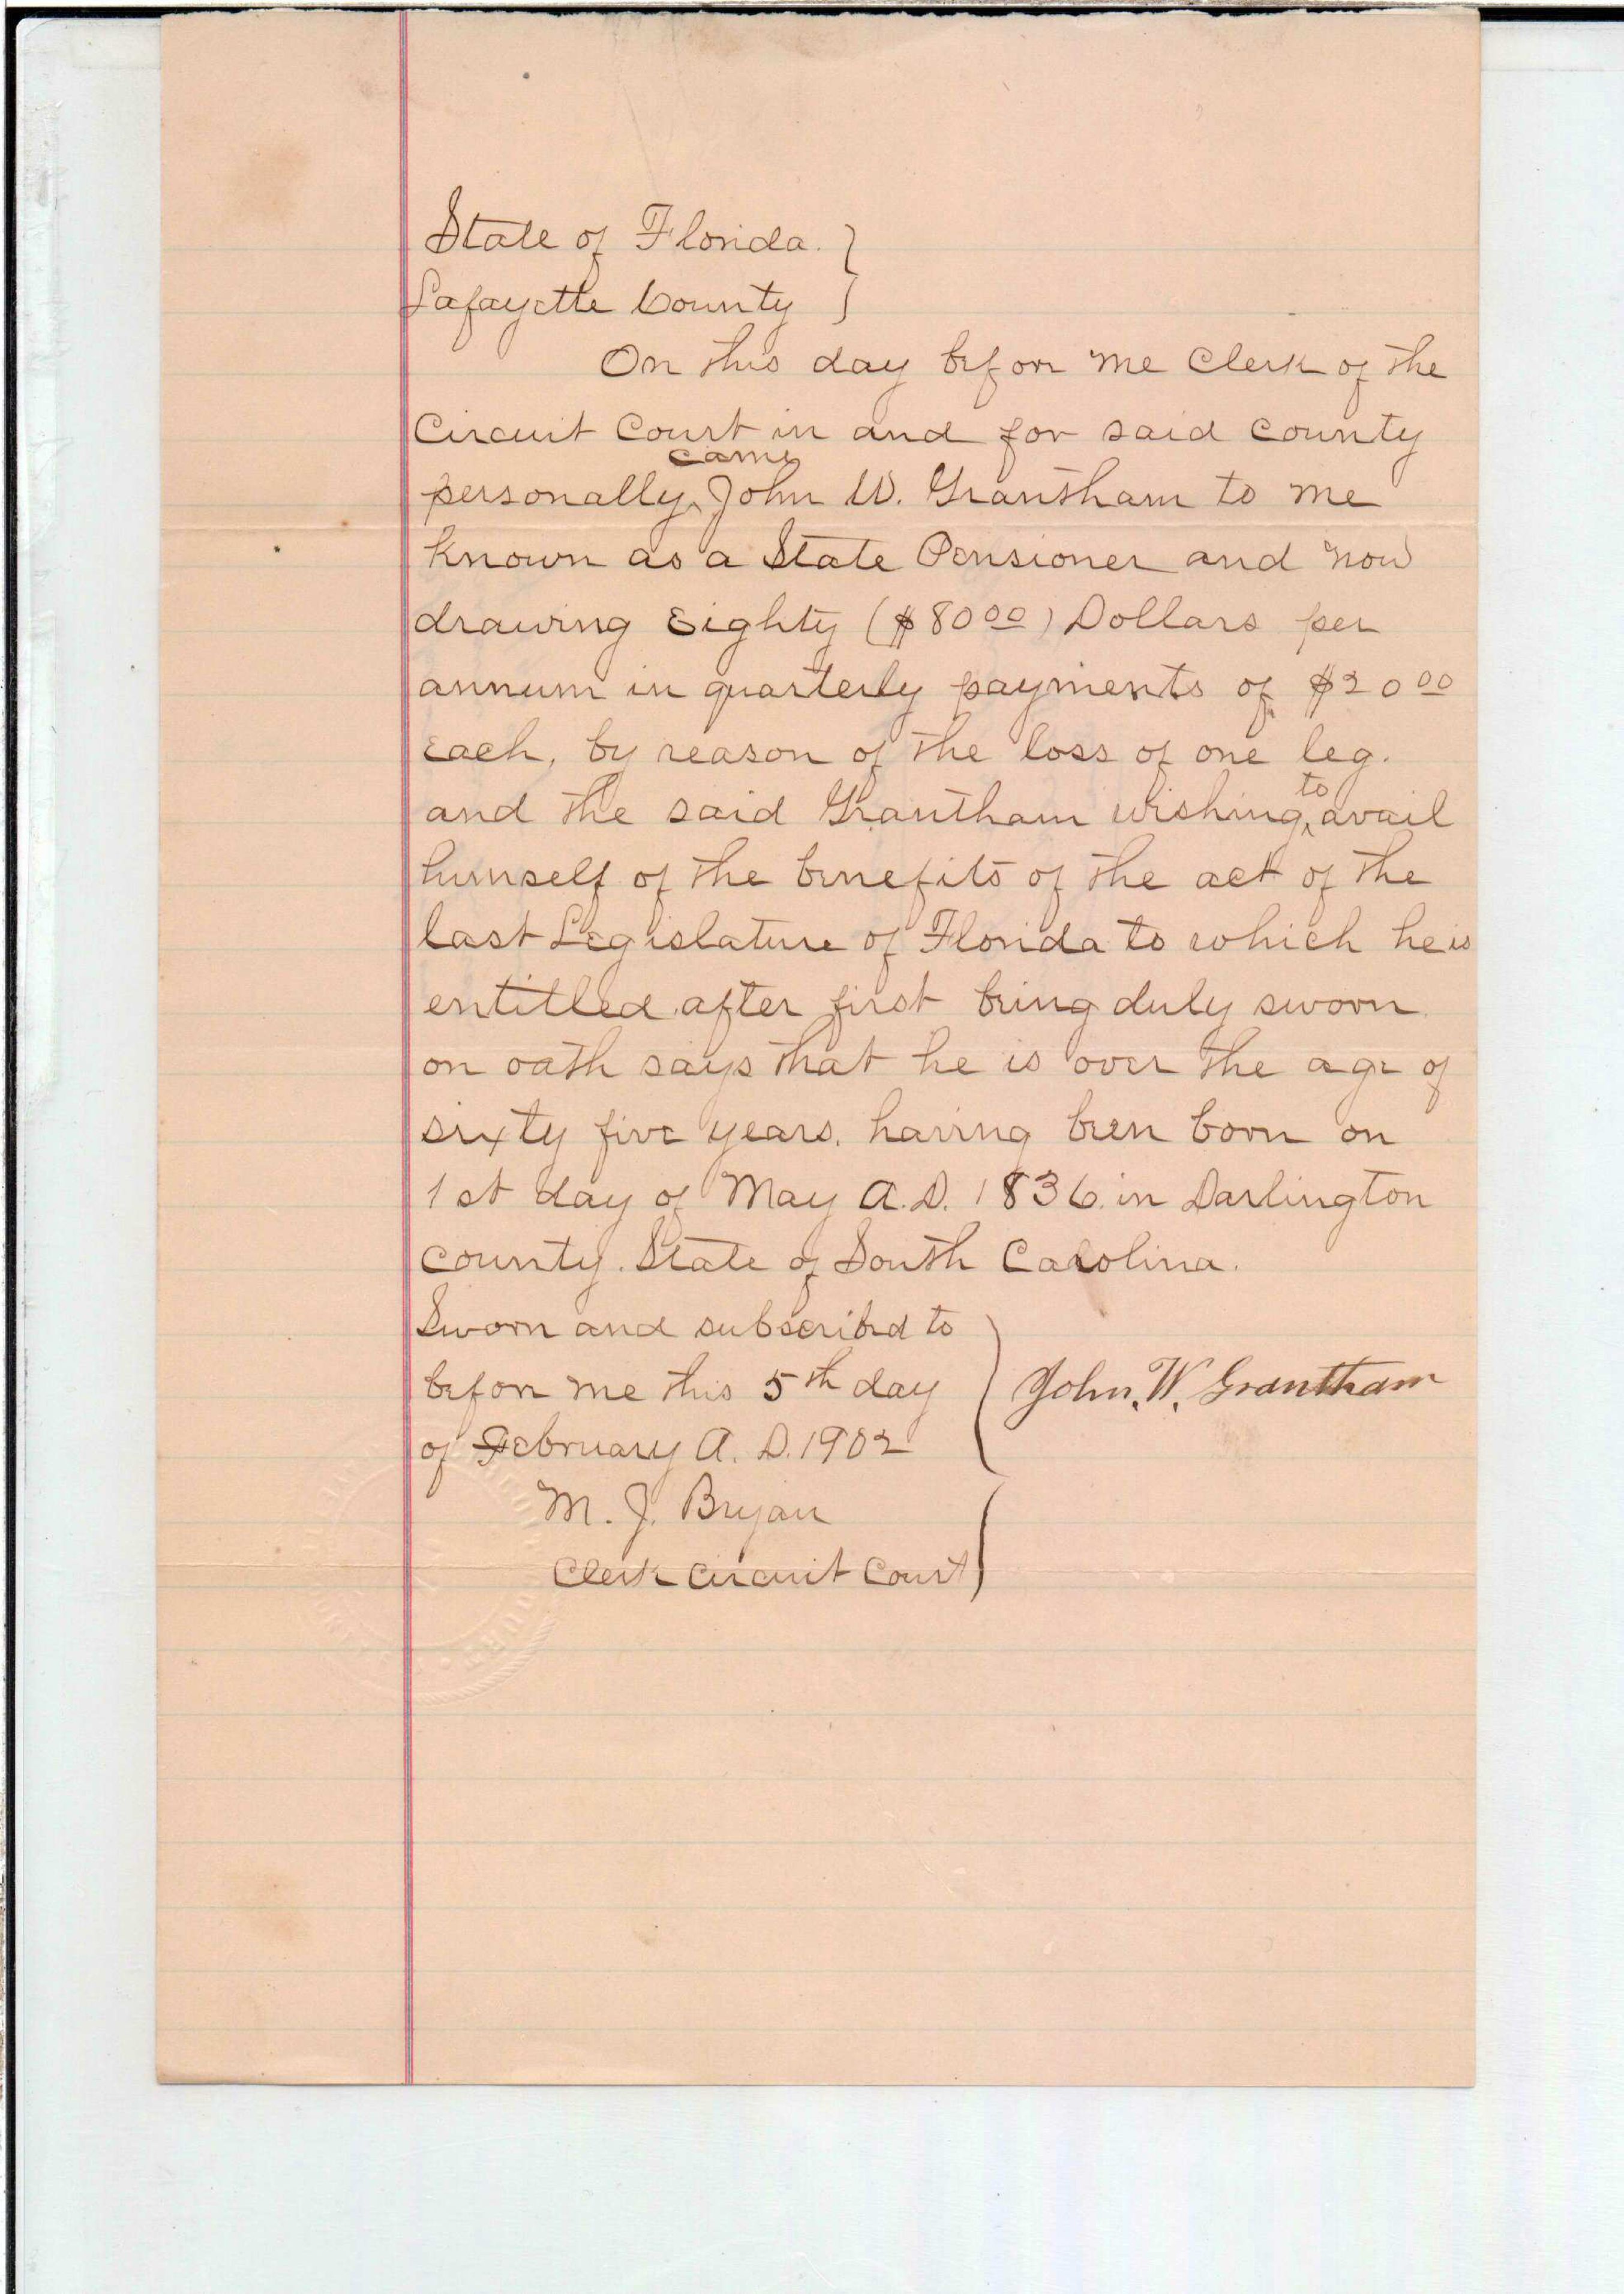 State of Florida. }
Lafayette County }
On this day before me Clerk of the
Circuit Court in and for said County
came
personally ^ John W. Grantham to me
known as a State Pensioner and now
drawing Eighty ($80 00) Dollars per
annum in quarterly payments of $20 00
each, by reason of the loss of one leg.
to
and the said Grantham wishing ^ avail
himself of the benefits of the act of the
last Legislature of Florida to which he is
entitled after first being duly sworn
on oath says that he is over the age of
sixty five years. having been born on
1st day of May A.D. 1836. in Darlington
county. State of South Carolina.
Sworn and subscribed to
before me this 5th day
of February A. D. 1902
John. W. Grantham
M. J. Bryan
Clerk Circuit Court